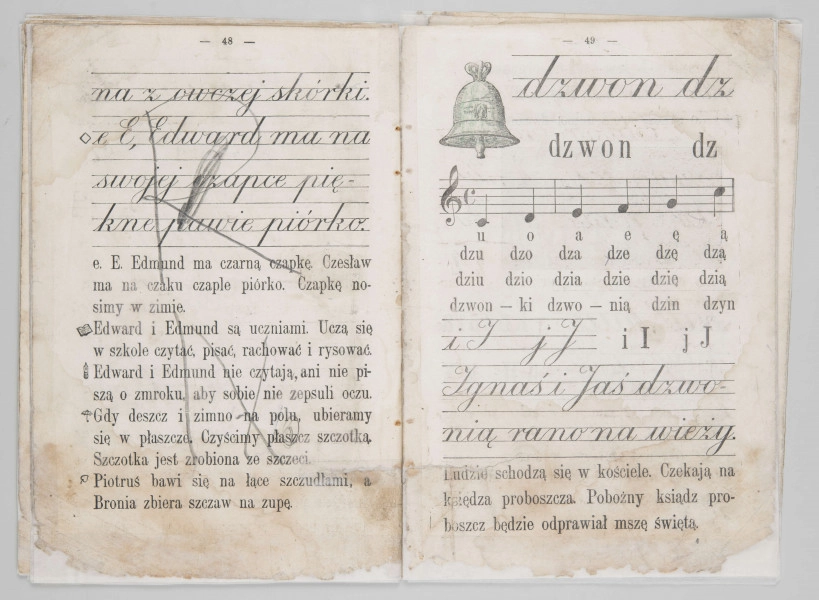 — 48 —
na z owczej skórki.
e E, Edward ma na
swojej czapce pię-
kne pawie piórko.
e. E. Edmund ma czarną czapkę. Czesław
ma na czaku czaple piórko. Czapkę no-
simy w zimie.
Edward i Edmund są uczniami. Uczą się
w szkole czytać, pisać, rachować i rysować.
Edward i Edmund nie czytają, ani nie pi-
szą o zmroku, aby sobie nie zepsuli oczu.
Gdy deszcz i zimno na polu, ubieramy
się w płaszcze. Czyścimy płaszcz szczotką.
Szczotka jest zrobiona ze szczeci.
Piotruś bawi się na łące szczudłami, a
Bronia zbiera szczaw na zupę.
— 49 —
dzwon dz
dzwon dz
u o a e ę ą
dzu dzo dza dze dzę dzą
dziu dzio dzia dzie dzię dzią
dzwon – ki dzwo – nią dzin dzyn
i I j J i I j J
Ignaś i Jaś dzwo-
nią rano na wieży.
Ludzie schodzą się w kościele. Czekają na
księdza proboszcza. Pobożny ksiądz pro-
boszcz będzie odprawiał mszę świętą.